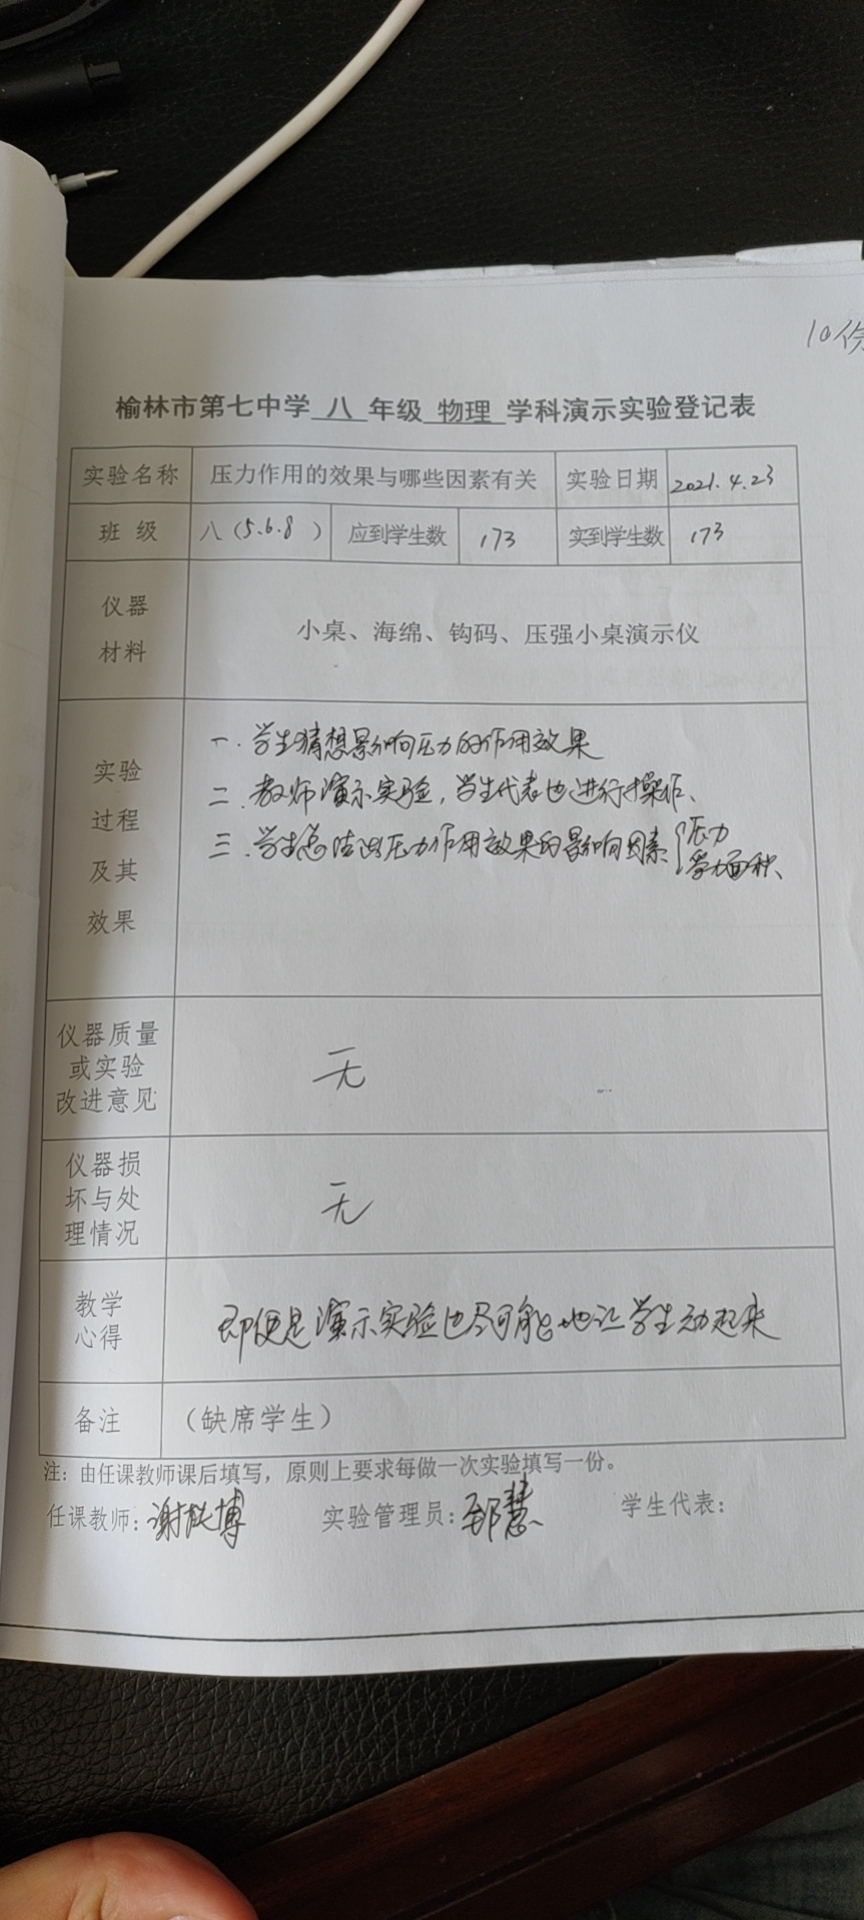 10份
榆林市第七中学 八 年级 物理 学科演示实验登记表
实验名称 压力作用的效果与哪些因素有关 实验日期 2021.4.23
班 级 八（5.6.8） 应到学生数 173 实到学生数 173
仪器
材料
小桌、海绵、钩码、压强小桌演示仪
实验
过程
及其
效果
一.学生猜想影响压力的作用效果
二.教师演示实验，学生代表也进行操作、
三.学生总结出压力作用效果的影响因素{压力
受力面积、
仪器质量
或实验
改进意见
无
仪器损
坏与处
理情况
无
教学
心得
即便是演示实验也尽可能地让学生动起来
备注 （缺席学生）
注：由任课教师课后填写，原则上要求每做一次实验填写一份。
任课教师：谢 博 实验管理员： 慧 学生代表：